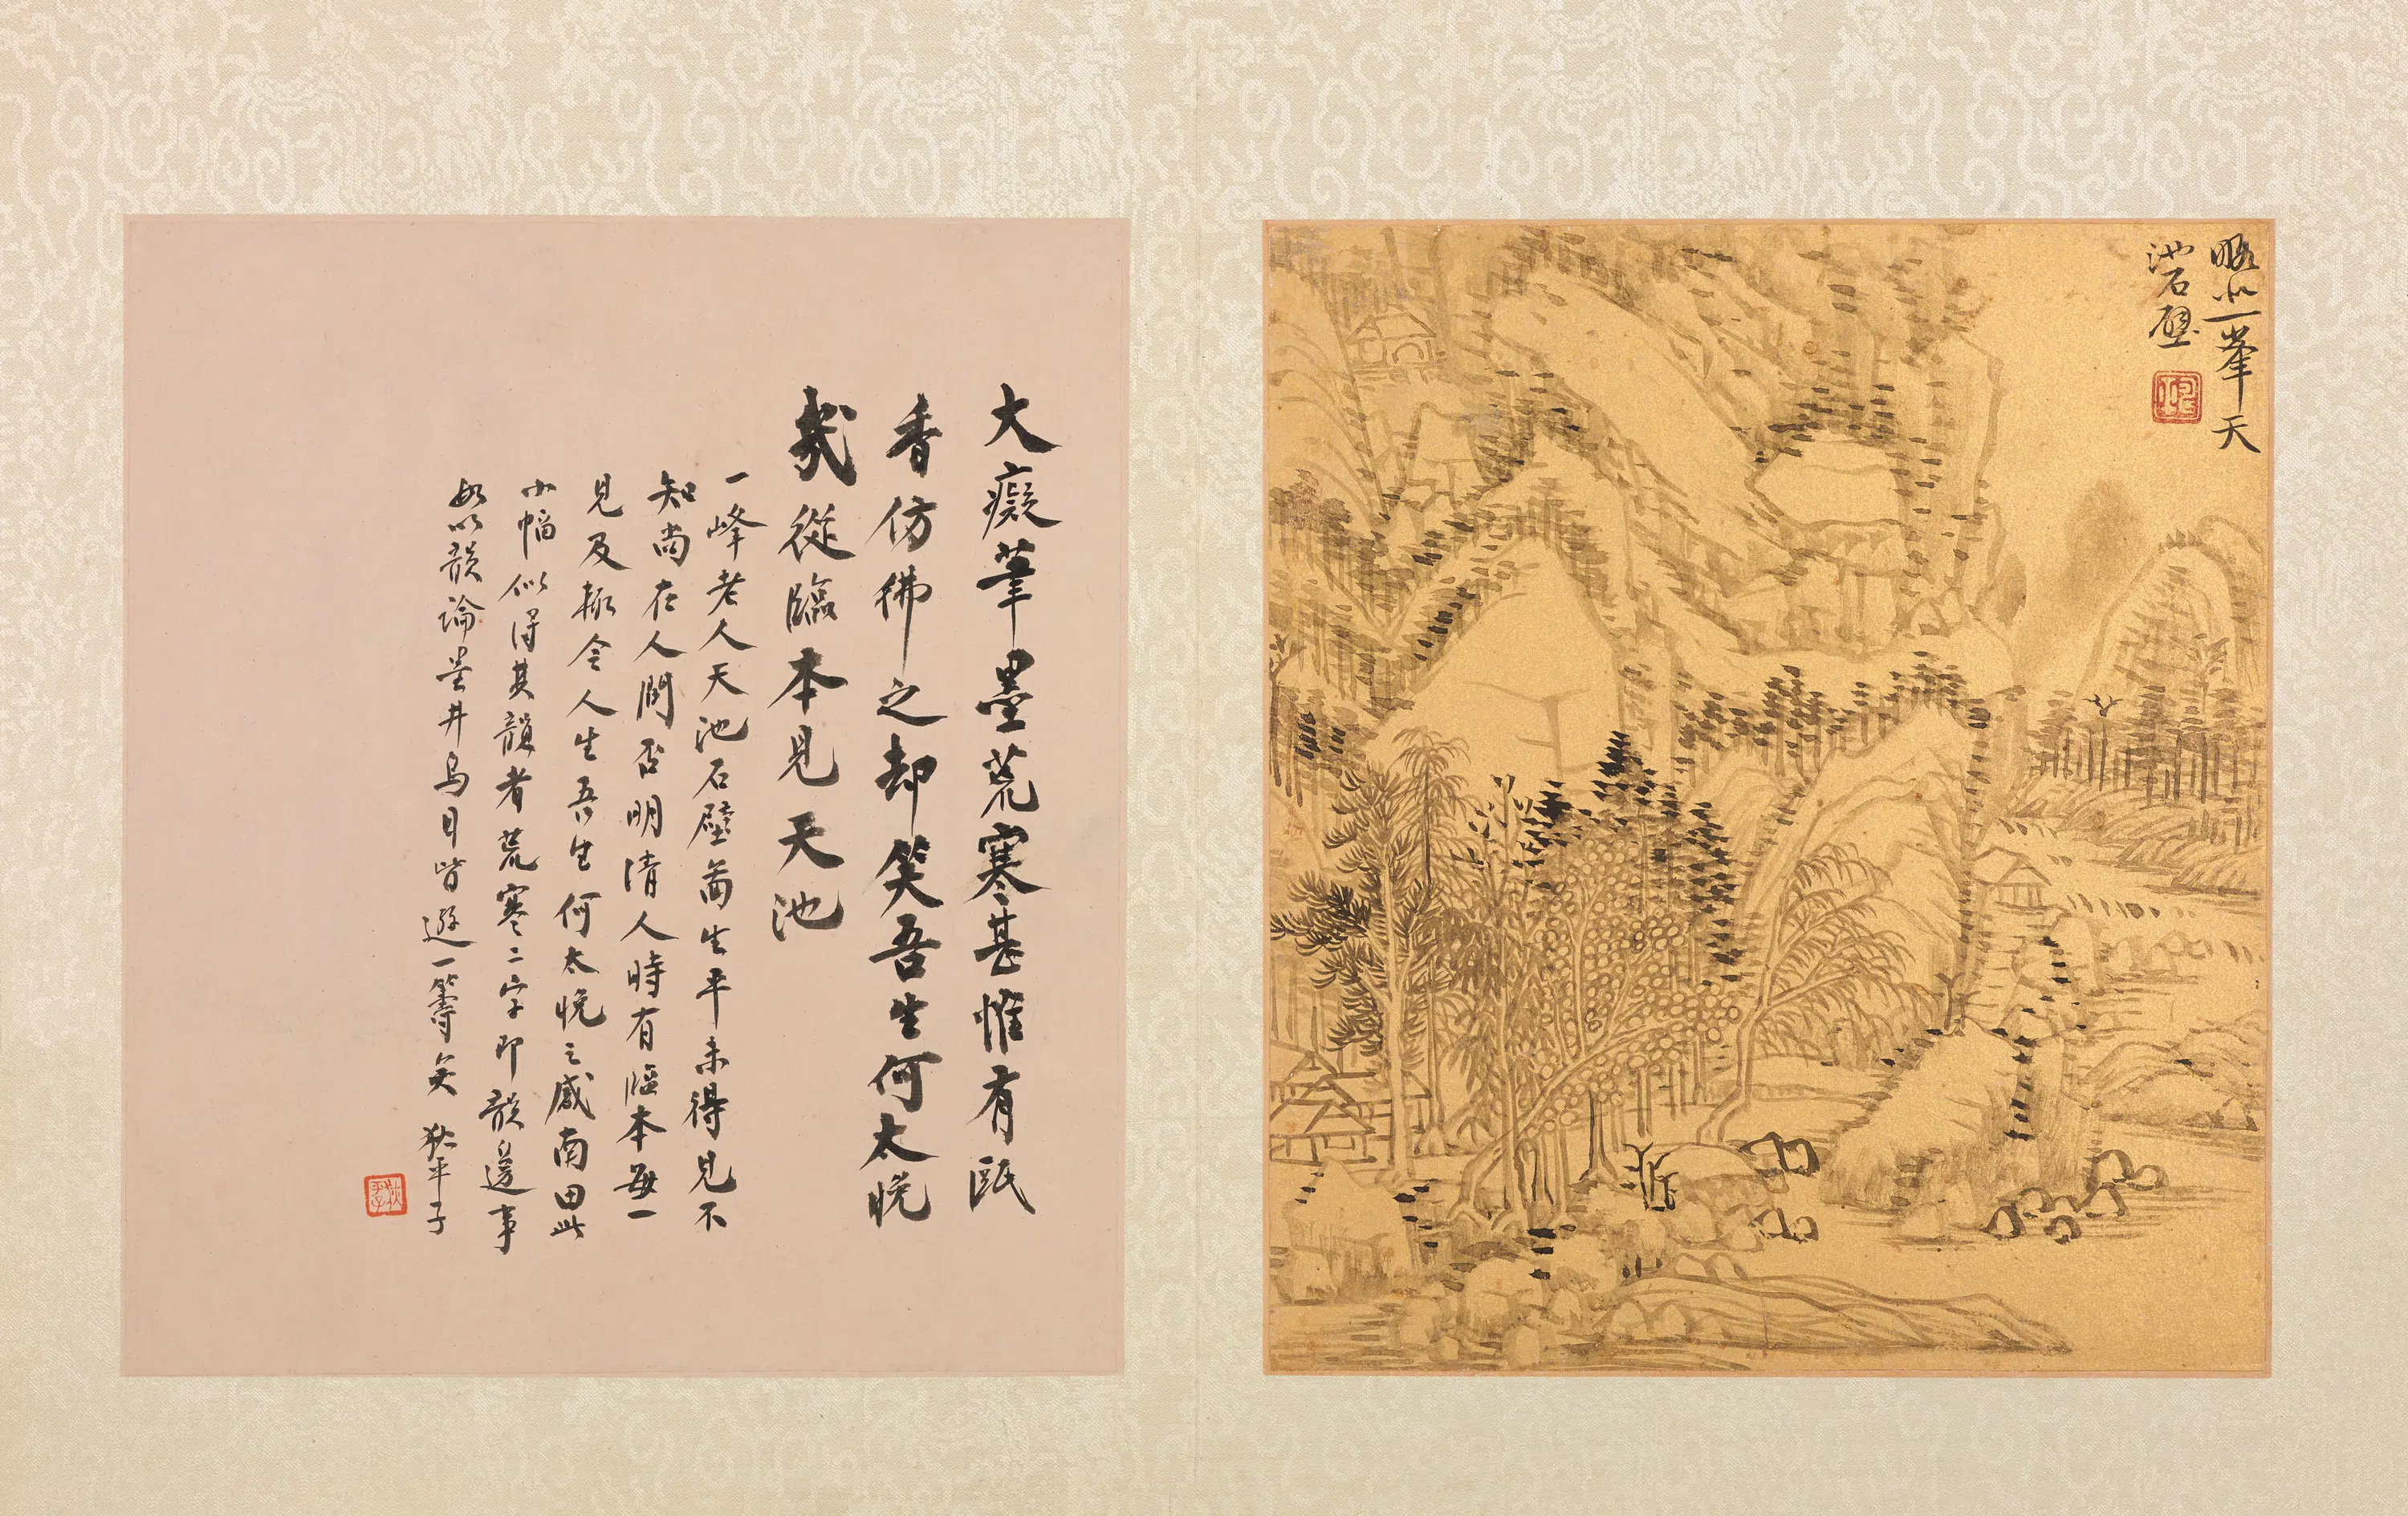 略似一峯天
池石壁
大癡筆墨荒寒甚惟有甌
香仿彿之却笑吾生何太晚
幾從臨本見天池
一峰老人天池石壁啚生平未得見不
知尚在人間否明清人時有臨本每一
見及輒令人生吾生何太晚之感南田此
小幅似得其韻者荒寒二字即韻邊事
如以韻論墨井烏目皆遜一籌矣 狄平子